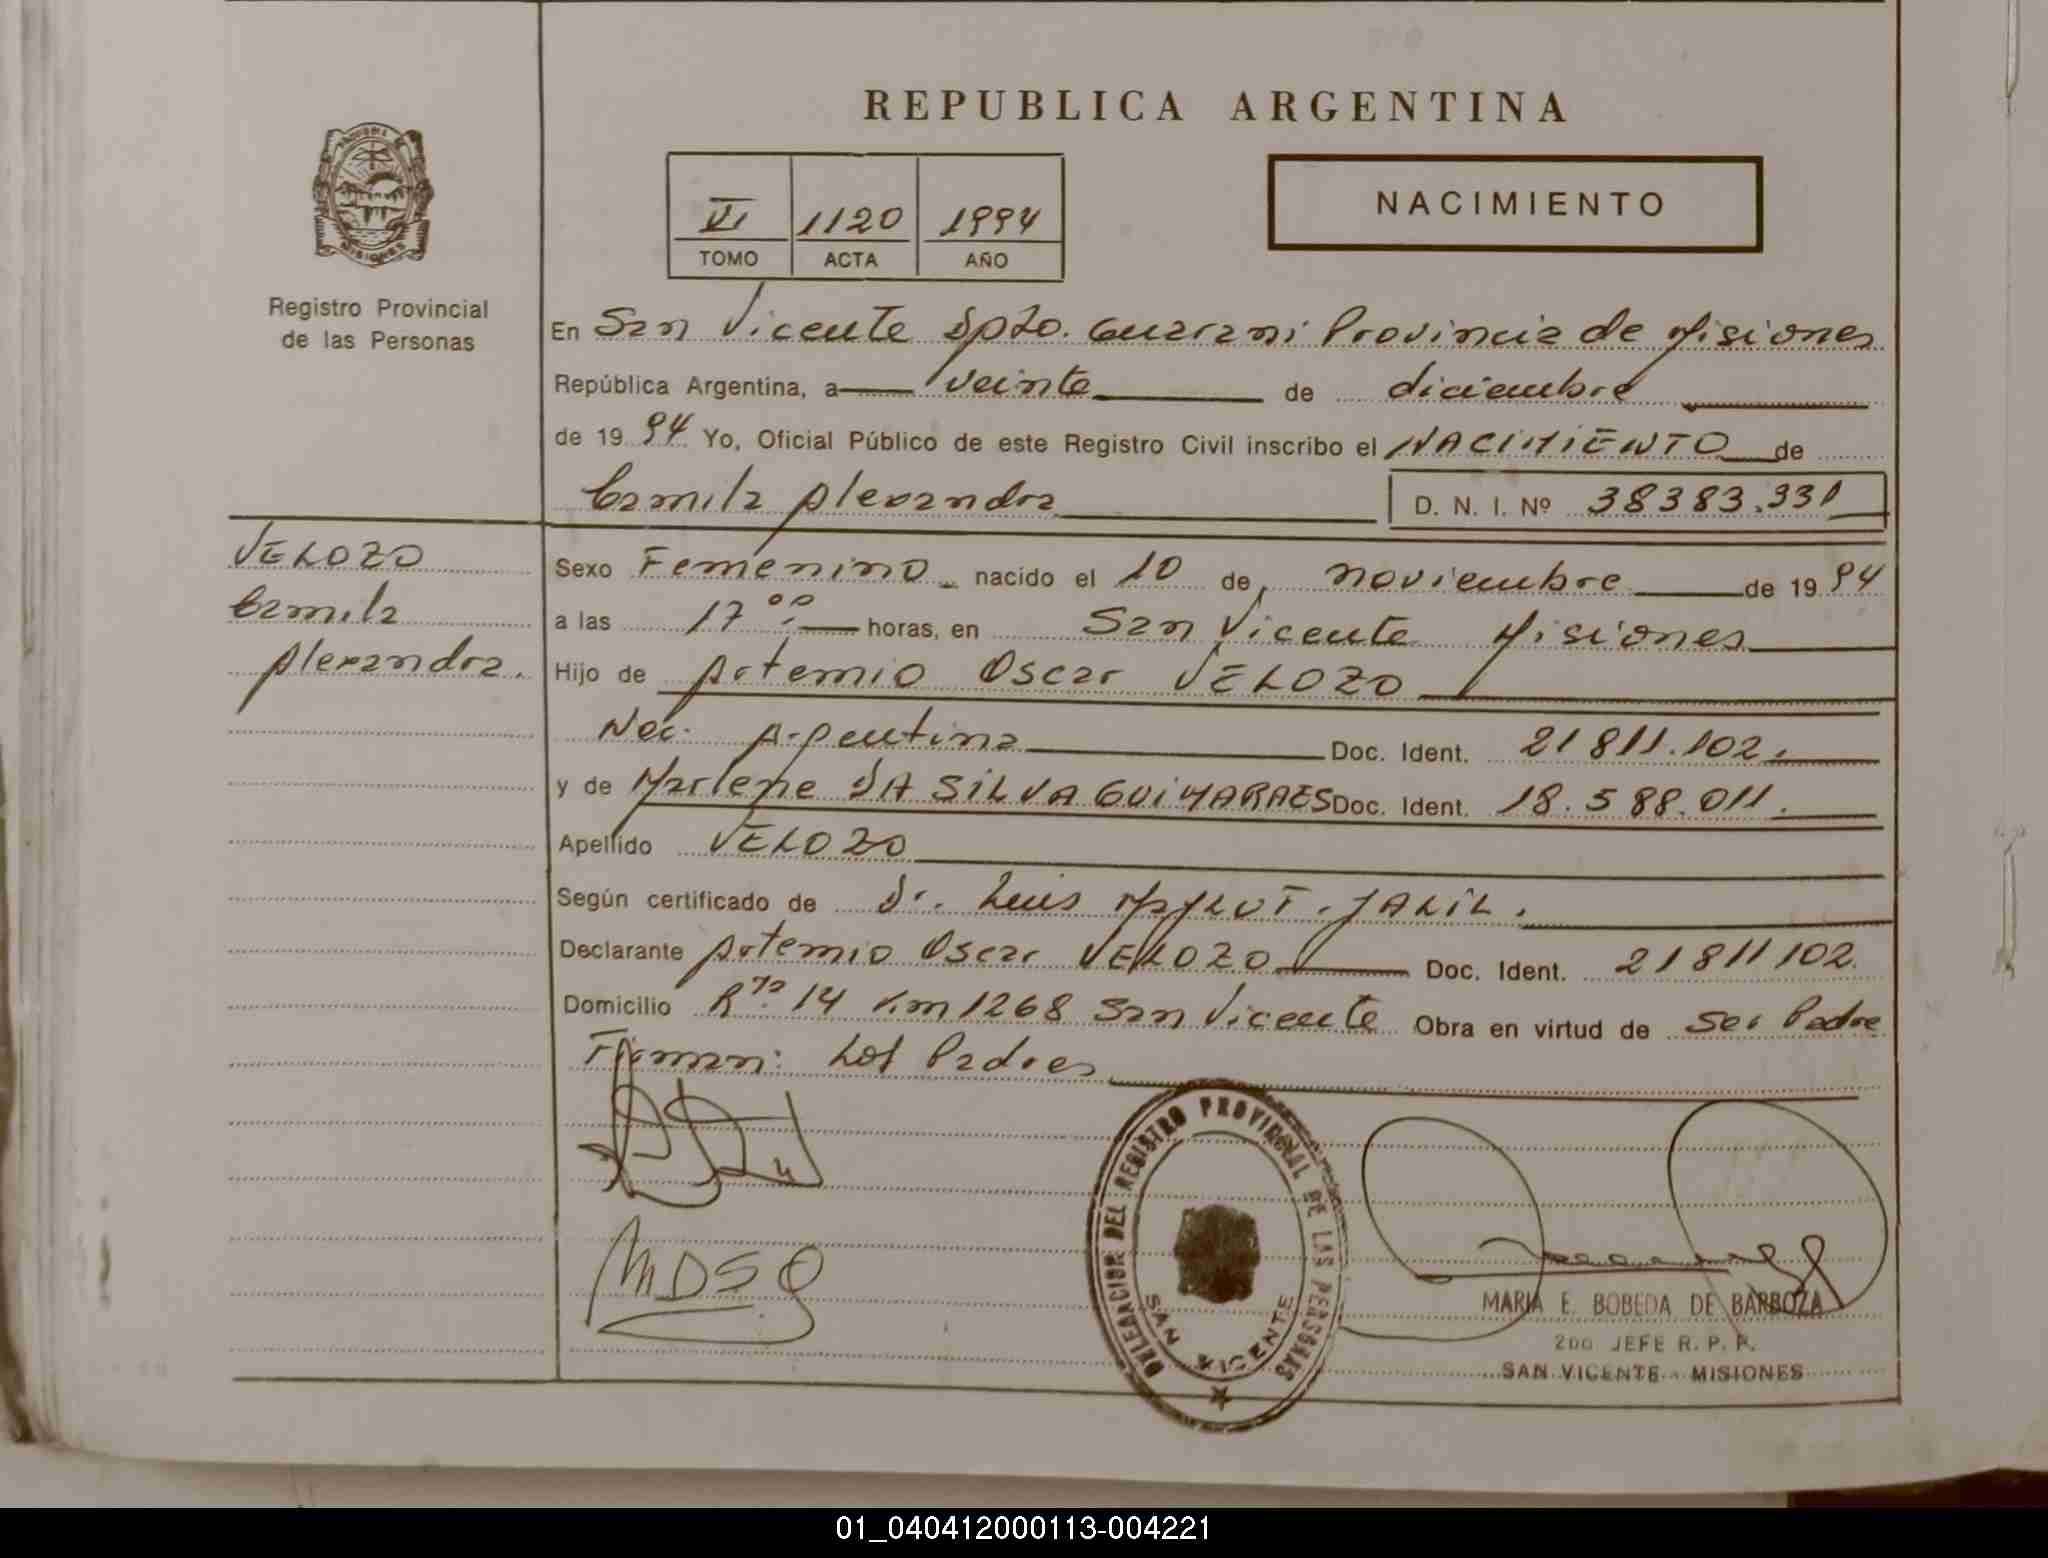 REPUBLICA ARGENTINA
VI 1120 1994
TOMO ACTA AÑO
NACIMIENTO
MISIONES
Registro Provincial
de las Personas
En San Vicente Dpto. Guarani Provincia de Misiones
República Argentina, a veinte de diciembre
de 1994 Yo, Oficial Público de este Registro Civil inscribo el NACIMIENTO de
Camila Alexandra D. N. I. Nº 38383.331
VELOZO
Camila
Alexandra.
Sexo Femenino nacido el 10 de noviembre de 1994
a las 17 00 horas, en San Vicente Misiones
Hijo de Artemio Oscar VELOZO
Nac. Argentina Doc. Ident. 21811.102.
y de Marlene DA SILVA GUIMARAES Doc. Ident. 18.588.011.
Apellido VELOZO
Según certificado de Dr. Luis JALIL.
Declarante Artemio Oscar VELOZO Doc. Ident. 21811102.
Domicilio Rta. 14 Km 1268 San Vicente Obra en virtud de Ser Padre
Firman: Los Padres
MDSG
DELEGACION DEL REGISTRO PROVINCIAL DE LAS PERSONAS
SAN VICENTE
MARIA E. BOBEDA DE BARBOZA
2DO JEFE R. P. P.
SAN VICENTE - MISIONES
01_040412000113-004221